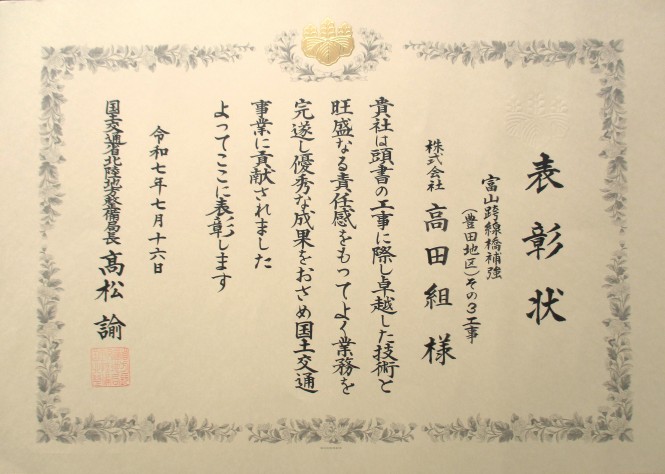 表彰状
富山跨線橋補強
（豊田地区）その３工事
株式会社 高田組様
貴社は頭書の工事に際し卓越した技術と
旺盛なる責任感をもってよく業務を
完遂し優秀な成果をおさめ国土交通
事業に貢献されました
よってここに表彰します
令和七年七月十六日
国土交通省北陸地方整備局長 髙松諭